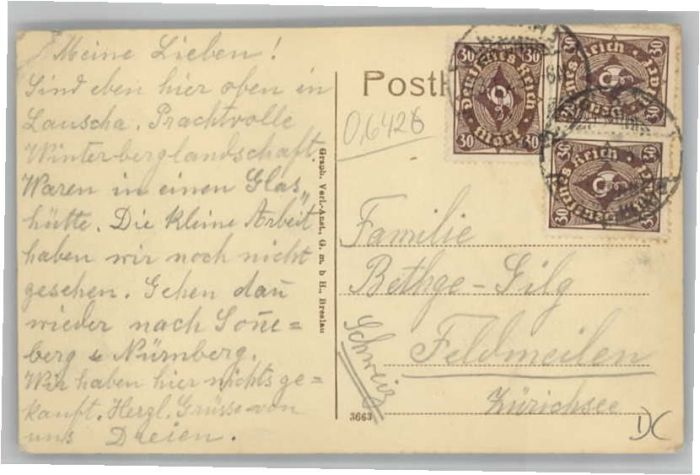 Meine Lieben!
Sind eben hier oben in
Lauscha. Prachtvolle
Winterberglandschaft.
Waren in einen Glas„
hütte. Die kleine Arbeit
haben wir noch nicht
gesehen. Gehen dan̄
wieder nach Son̄e=
berg & Nürnberg.
Wir haben hier nichts ge=
kauft. Herzl. Grüsse von
uns Dreien.
Graph. Verl.-Anst., G. m. b H., Breslau
Postk
0,6426
30 30
Deutsches Reich
Mark
30 30
30
Deutsches Reich
Mark
30
30
Deutsches Reich
Mark
30
Familie
Bethge-Gilg
Feldmeilen
Schweiz
Zürichsee
3663